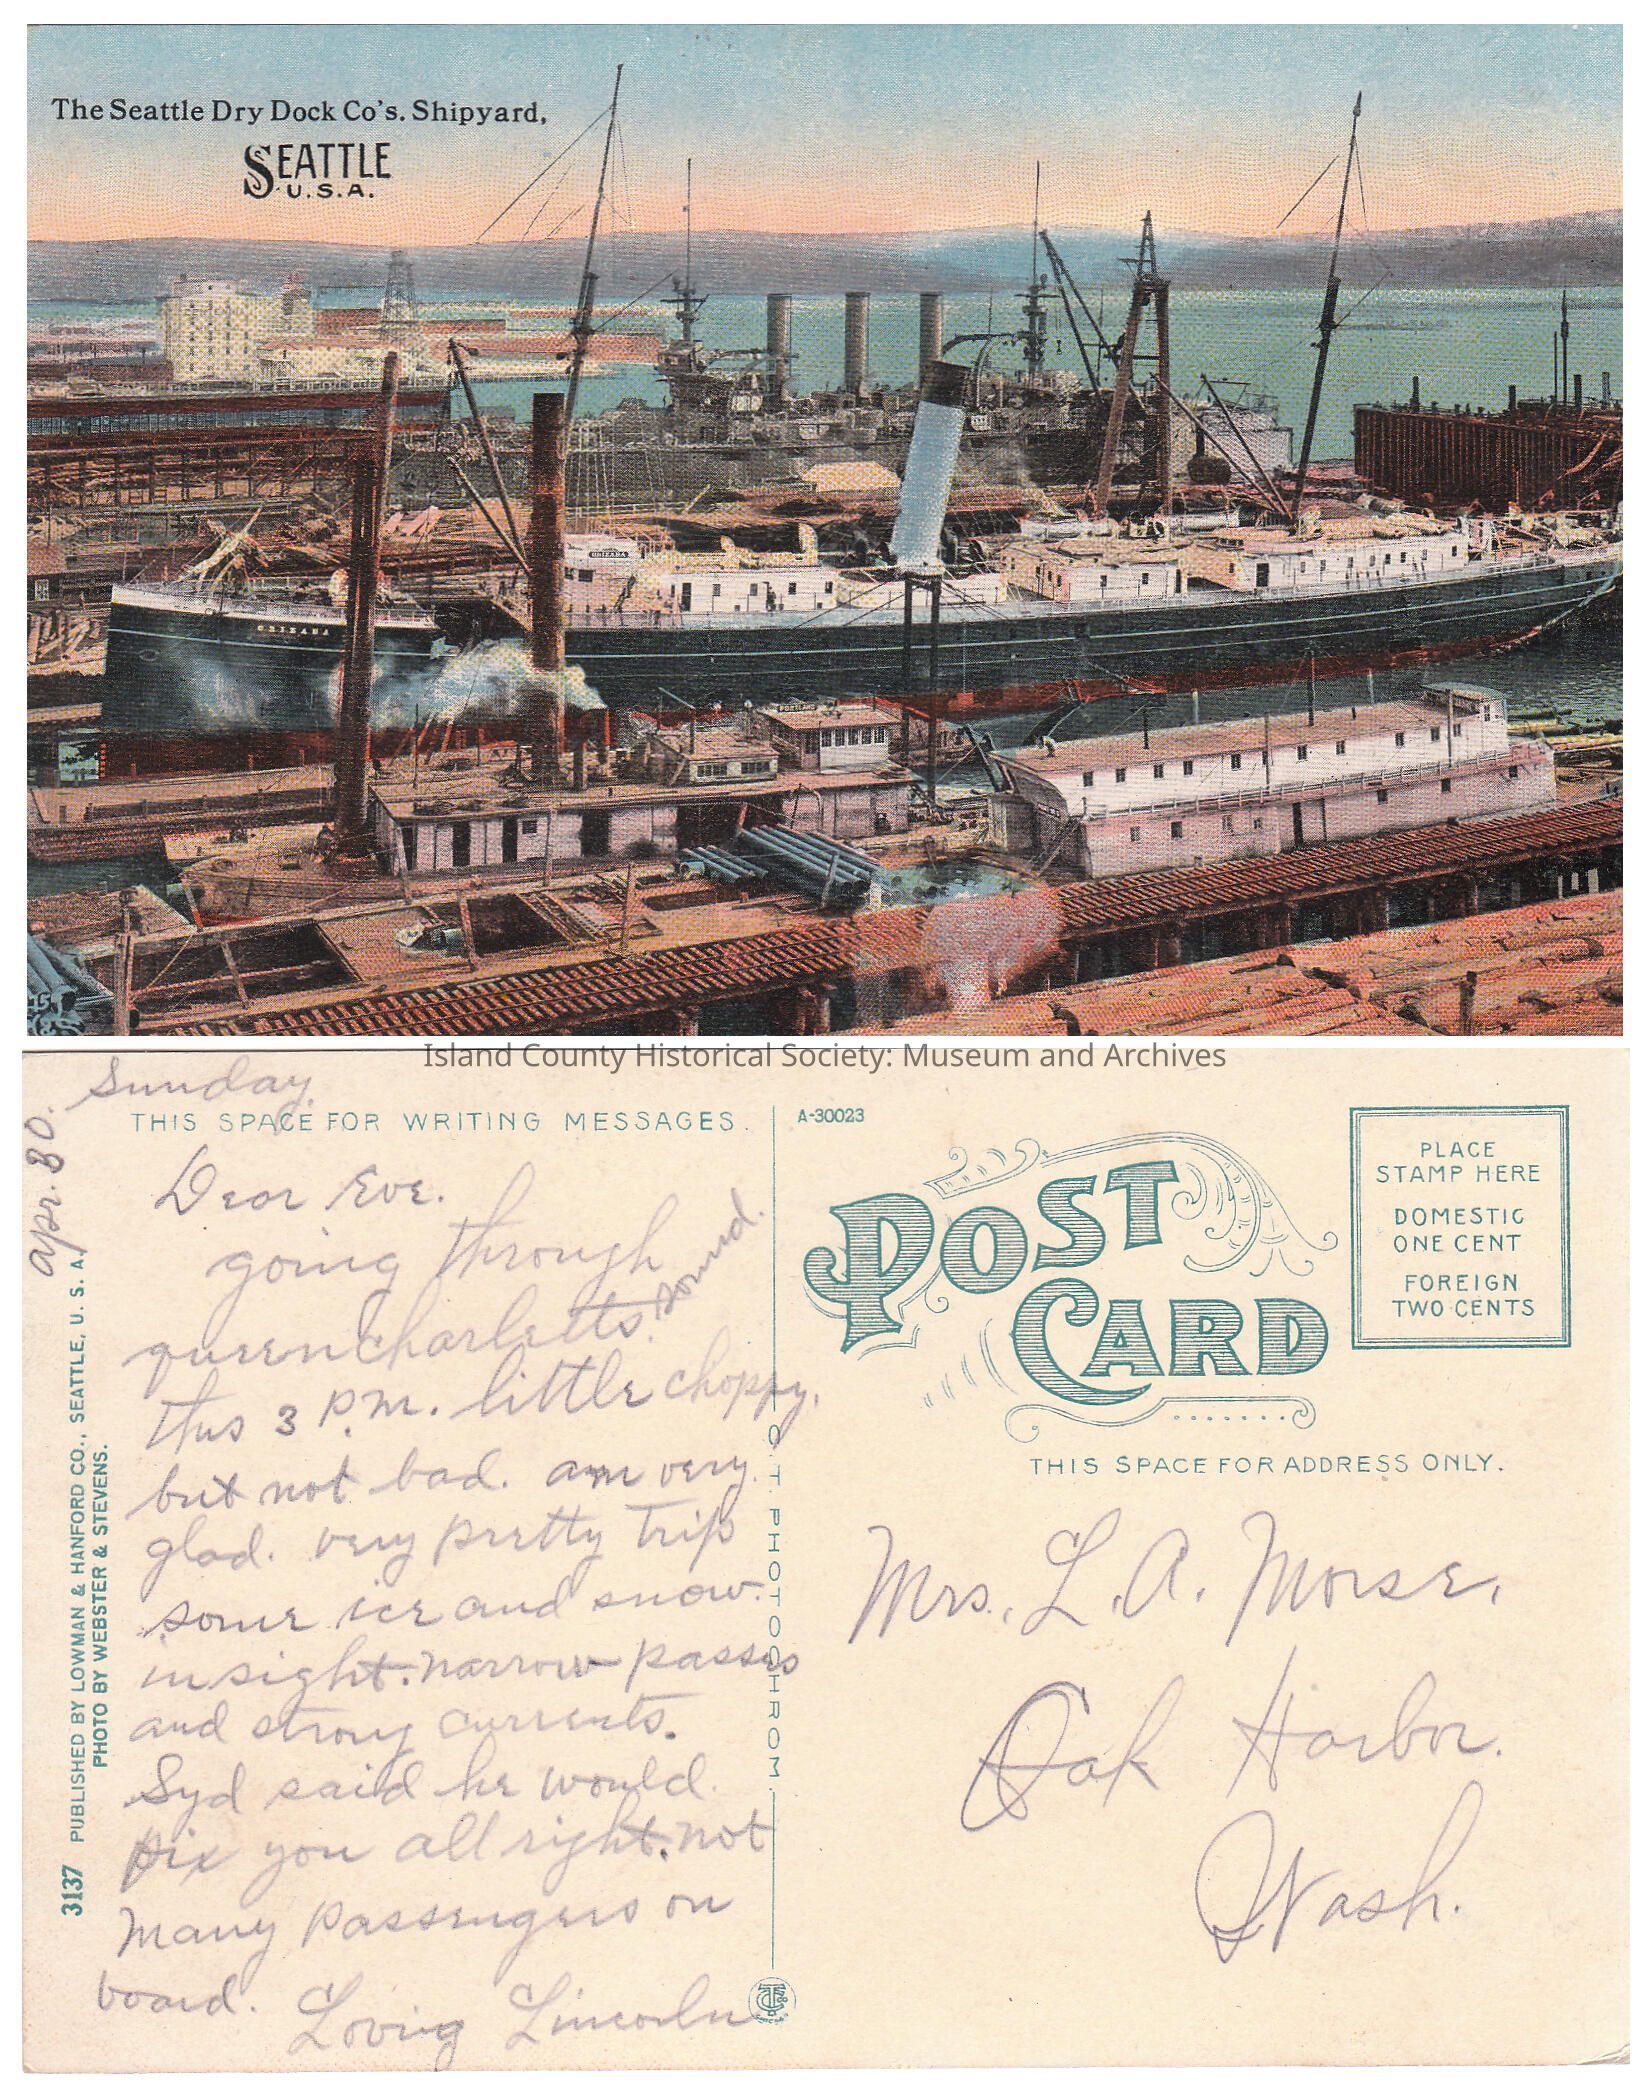 The Seattle Dry Dock Co's. Shipyard,
SEATTLE
U.S.A.
ORIZABA
ORIZABA
PORTLAND
Island County Historical Society: Museum and Archives
Sunday.
apr. 30.
THIS SPACE FOR WRITING MESSAGES.
Dear Eve.
going through
queen charlotts sound.
this 3 P.m. little choppy.
but not bad. am very
glad. very pretty Trip
some ice and snow.
in sight. narrow passes
and strong currents.
Syd said he would
fix you all right. not
many passengers on
board. Loving Lincoln
3137 PUBLISHED BY LOWMAN & HANFORD CO., SEATTLE, U. S. A.
PHOTO BY WEBSTER & STEVENS.
C. T. PHOTOCHROM
A-30023
POST
CARD
PLACE
STAMP HERE
DOMESTIC
ONE CENT
FOREIGN
TWO CENTS
THIS SPACE FOR ADDRESS ONLY.
Mrs. L. A. Morse.
Oak Harbor.
Wash.